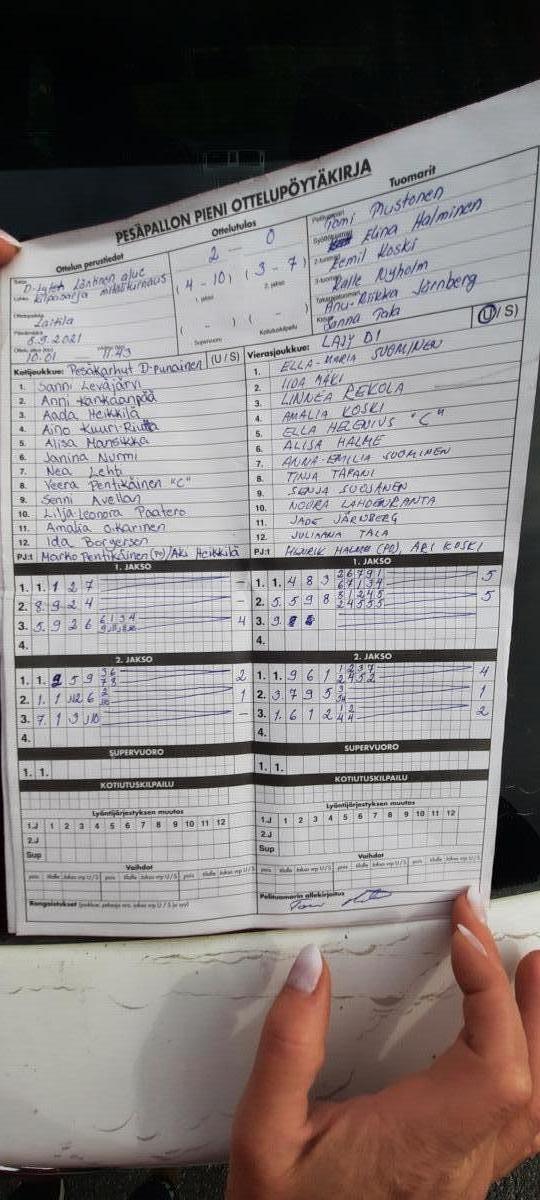 PESÄPALLON PIENI OTTELUPÖYTÄKIRJA
Ottelun perustiedot
Ottelutulos
Tuomarit
D-tytöt Läntinen alue
Laitila
8.2021
10.01 11.43
2 - 0
( 4 - 10 ) ( 3 - 7 )
1. jakso 2. jakso
( - ) ( - )
Supervuoro Kotiutuskilpailu
Tomi Mustonen
Elina Halminen
Eemil Koski
Kalle Nyholm
Anu-Riikka Järnberg
Sanna Tala
Kotijoukkue: Pesäkarhut D-punainen (U / S)
1. Sanni Leväjärvi
2. Anni Kankaanpää
3. Aada Heikkilä
4. Aino Kuuri-Riutta
5. Alisa Mansikka
6. Janina Nurmi
7. Nea Lehti
8. Veera Pentikäinen "C"
9. Senni Avellan
10. Lilja-Leonora Paatero
11. Amalia Okarinen
12. Ida Borgersen
PJ:t Marko Pentikäinen (PJ)/Aki Heikkilä
Vierasjoukkue: LAJY D1 (U / S)
1. ELLA-MARIA SUOMINEN
2. IIDA MÄKI
3. LINNEA REKOLA
4. AMALIA KOSKI
5. ELLA HELENIUS "C"
6. ALISA HALME
7. ANNA-EMILIA SUOMINEN
8. TINJA TAPANI
9. SENJA SUOJANEN
10. NOORA LAHDENRANTA
11. JADE JÄRNBERG
12. JULIANNA TALA
PJ:t HENRIK HALME (PJ), ARI KOSKI
1. JAKSO
1. 1. 1 2 7 -
2. 8. 9 2 4 -
3. 5. 9 2 6 6 1 3 4 4
4.
1. JAKSO
1. 1. 4 8 3 2 6 7 9 1 5
6 7 1 3 4
2. 5. 5 9 8 3 1 2 4 5 5
2 4 5 5 5
3. 9.
4.
2. JAKSO
1. 1. 5 9 3 6 2
7 8
2. 1. 1 6 2 1
3. 7. 1 3 -
4.
2. JAKSO
1. 1. 9 6 1 1 2 3 7 4
2 4 5 2
2. 3. 7 9 5 3 1
3. 1. 6 1 2 1 2 2
4 4
4.
SUPERVUORO
1. 1.
SUPERVUORO
1. 1.
KOTIUTUSKILPAILU
KOTIUTUSKILPAILU
Lyöntijärjestyksen muutos
1.J 1 2 3 4 5 6 7 8 9 10 11 12
2.J
Sup
Lyöntijärjestyksen muutos
1.J 1 2 3 4 5 6 7 8 9 10 11 12
2.J
Sup
Vaihdot
Vaihdot
Rangaistukset
Pelituomarin allekirjoitus